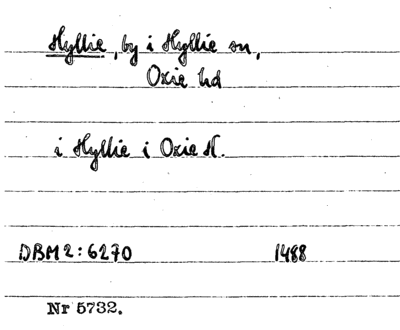 Hyllie, by i Hyllie sn,
Oxie hd
i Hyllie i Oxie H.
DBM2:6270 1488
Nr 5732.